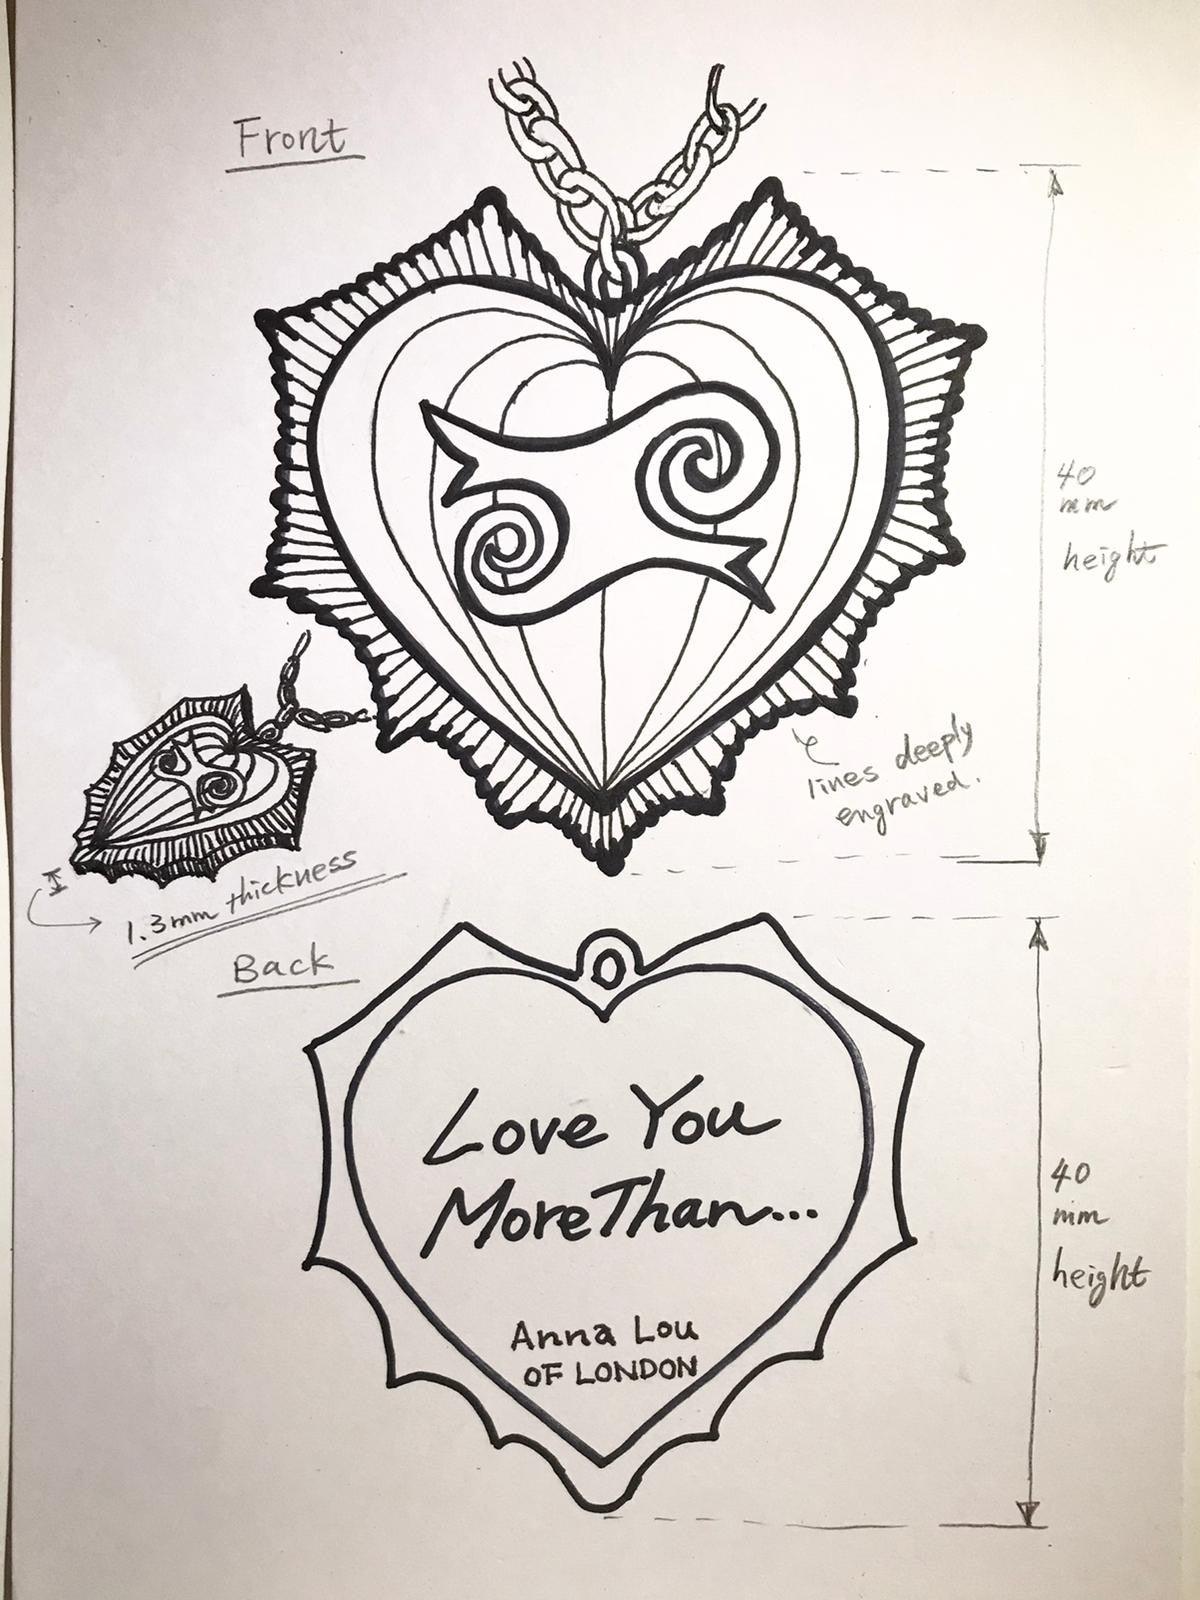 Front
40
mm
height
lines deeply
engraved.
1.3mm thickness
Back
Love You
More Than...
Anna Lou
OF LONDON
40
mm
height